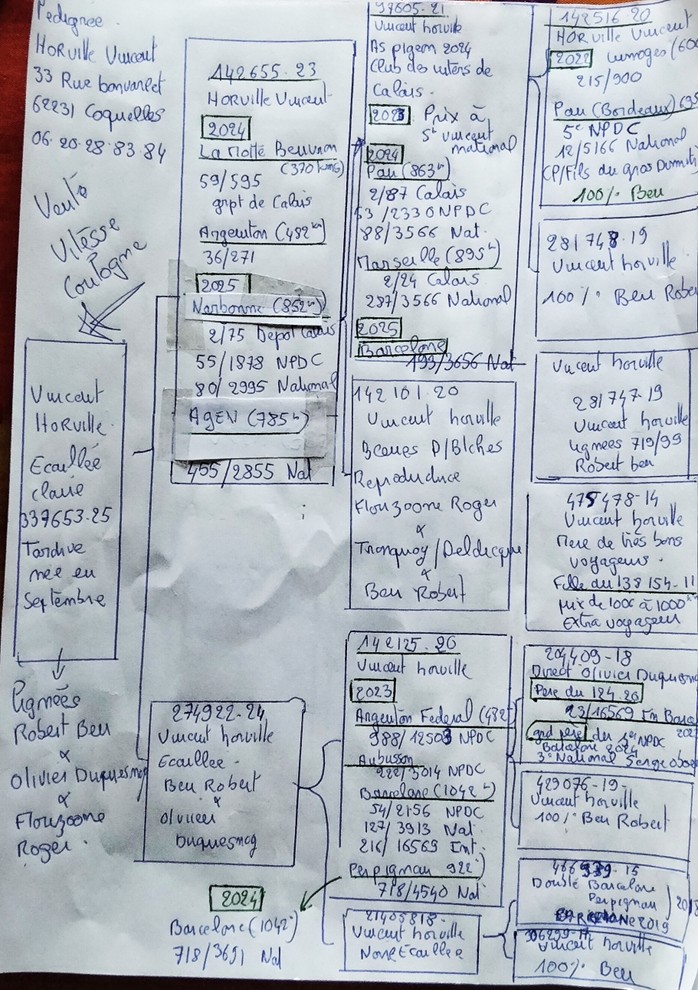 Pedigree
HORVILLE Vincent
33 Rue bonvarlet
62231 Coquelles
06.20.28.83.84
Vente
Vitesse
Coulogne
Vincent
HORVILLE
Ecaillée
claire
337653-25
Tardive
née en
Septembre
Lignées
Robert Ben
&
Olivier Duquesnoy
&
Flouzoone
Roger.
142655-23
HORVILLE Vincent
2024
La Motte Beuvron
(370 kms)
59/595
gnpt de Calais
Argenton (482 km)
36/271
2025
Narbonne (852 km)
2/75 Depot Calais
55/1878 NPDC
80/2995 National
AGEN (785 km)
455/2855 Nat
274922-24
Vincent horville
Ecaillee
Ben Robert
&
Olivier
Duquesnoy
2024
Barcelone (1042
718/3691 Nat
97605-21
Vincent horville
As pigeon 2024
Club des inters de
Calais.
2023 Prix à
St vincent
national
2024
Pau (863 km)
2/87 Calais
53/2330 NPDC
88/3566 Nat.
Marseille (895 km)
2/24 Calais
287/3566 National
2025
Barcelone
193/3656 Nat
142101-20
Vincent horville
Reproductrice
Flouzoone Roger
&
Tronquoy/Deldicque
&
Ben Robert
142125-20
Vincent horville
2023
Argenton Federal (482
388/12503 NPDC
Aubusson
922/3014 NPDC
Barcelone (1042 km)
54/2156 NPDC
127/3913 Nat.
216/16569 Int.
Perpignan 922
718/4540 Nat
21405818-
Vincent horville
Noire Ecaillee
142516-20
HORVILLE Vincent
2022 Limoges (600
215/900
Pau (Bordeaux)
5e NPDC
12/5166 National
CP/Fils du gros Dumitri
100% Ben
281748-19
Vincent horville
100% Ben Robert
Vincent horville
281747-19
Vincent horville
lignees 719/99
Robert ben
475478-14
Vincent horville
Mere de très bons
voyageurs.
Fille du 138154-11
prix de 100 à 1000 km
Extra voyageur
204409-18
Direct Olivier Duquesnoy
Pere du 124-20
23/16569 Int Barce
gnd pere du 1er NPDC
Barcelone 2024
3e National Serge
429076-19-
Vincent horville
100% Ben Robert
Double Barcelone
Perpignan
2019
306299-17
Vincent horville
100% Ben